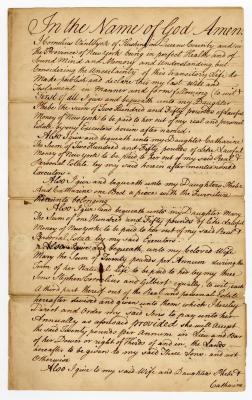 In the Name of God Amen
I Cornelius Van Wyck of Flushing in Queens County and in
the Province of New York being in perfect Health and of
Sound Mind and Memory and Understanding but
Considering the Uncertainty of this transitory Life do
Make publish and declare this my last Will and
Testament in Manner and form following to wit
First of all I give and bequeath unto my Daughter
Phebe the Sum of Two Hundred and Fifty pounds of Lawful
Money of New York to be paid to her out of my real and personal
Estate by my Executors herein after named
Also I give and bequeath unto my Daughter Catharine
the Sum of Two Hundred and Fifty pounds of like Lawful
Money of New York to be paid to her out of my said Real &
Personal Estate by my said herein after mentioned
Executors
Also I give and bequeath unto my Daughters Phebe
And Catharine one Bed a piece with the Furniture
thereunto belonging
Also I give and bequeath unto my Daughter Mary
The Sum of one Hundred and Fifty pounds of like Lawful
Money of New York to be paid to her out of my said Real &
Personal Estate by my said Executors
Also I give and bequeath unto my beloved Wife
Mary the Sum of Twenty pounds per Annum during the
Term of her Natural Life to be paid to her by my three
Sons Stephen Cornelius and Gilbert equally to wit each
A third part thereof out of the Real and personal Estate
hereafter devised and given unto them which I hereby
Direct and Order my said Sons to pay unto her
Annually as aforesaid provided she will Accept
the said Twenty pounds per Annum in Lieu and Barr
of her Dower or right of Thirds of and in the Lands
hereafter to be given to my said Three Sons and not
Otherwise
Also I give to my said Wife and Daughters Phebe &
Catharine